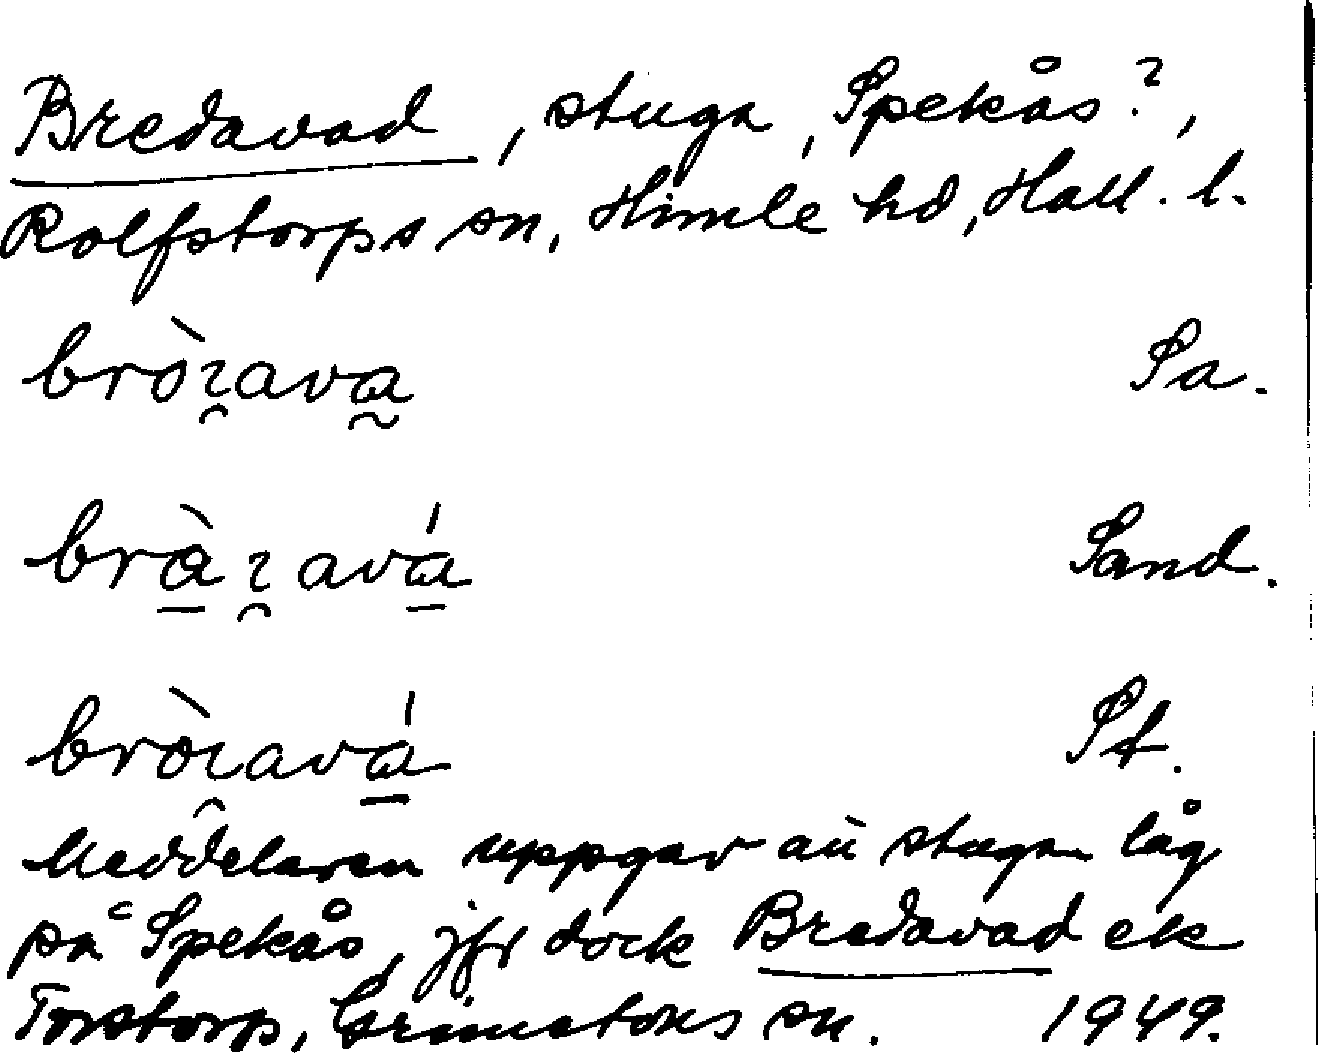 Bredavad, stuga, Spekås?,
Rolfstorps sn, Himle hd, Hall. l.
Sa.
Sand.
St.
Meddelaren uppgav att stugan låg
på Spekås, jfr dock Bredavad ek
Torstorp, Grimetons sn. 1949.